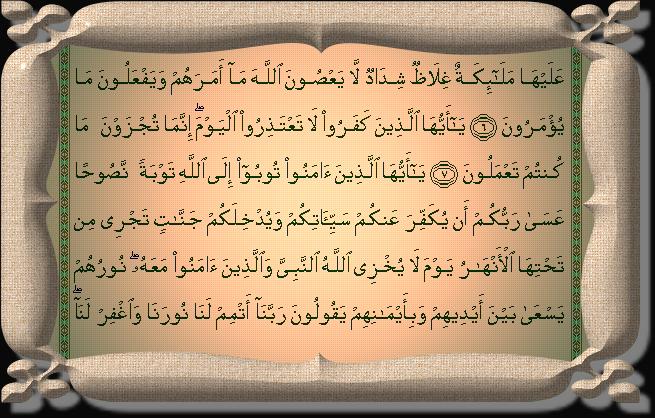 عَلَيْهَا مَلَـٰٓئِكَةٌ غِلَاظٌ شِدَادٌ لَّا يَعْصُونَ ٱللَّهَ مَآ أَمَرَهُمْ وَيَفْعَلُونَ مَا
يُؤْمَرُونَ ٦ يَـٰٓأَيُّهَا ٱلَّذِينَ كَفَرُوا۟ لَا تَعْتَذِرُوا۟ ٱلْيَوْمَ ۖ إِنَّمَا تُجْزَوْنَ مَا
كُنتُمْ تَعْمَلُونَ ٧ يَـٰٓأَيُّهَا ٱلَّذِينَ ءَامَنُوا۟ تُوبُوٓا۟ إِلَى ٱللَّهِ تَوْبَةً نَّصُوحًا
عَسَىٰ رَبُّكُمْ أَن يُكَفِّرَ عَنكُمْ سَيِّـَٔاتِكُمْ وَيُدْخِلَكُمْ جَنَّـٰتٍ تَجْرِى مِن
تَحْتِهَا ٱلْأَنْهَـٰرُ يَوْمَ لَا يُخْزِى ٱللَّهُ ٱلنَّبِىَّ وَٱلَّذِينَ ءَامَنُوا۟ مَعَهُۥ ۖ نُورُهُمْ
يَسْعَىٰ بَيْنَ أَيْدِيهِمْ وَبِأَيْمَـٰنِهِمْ يَقُولُونَ رَبَّنَآ أَتْمِمْ لَنَا نُورَنَا وَٱغْفِرْ لَنَآ ۖ